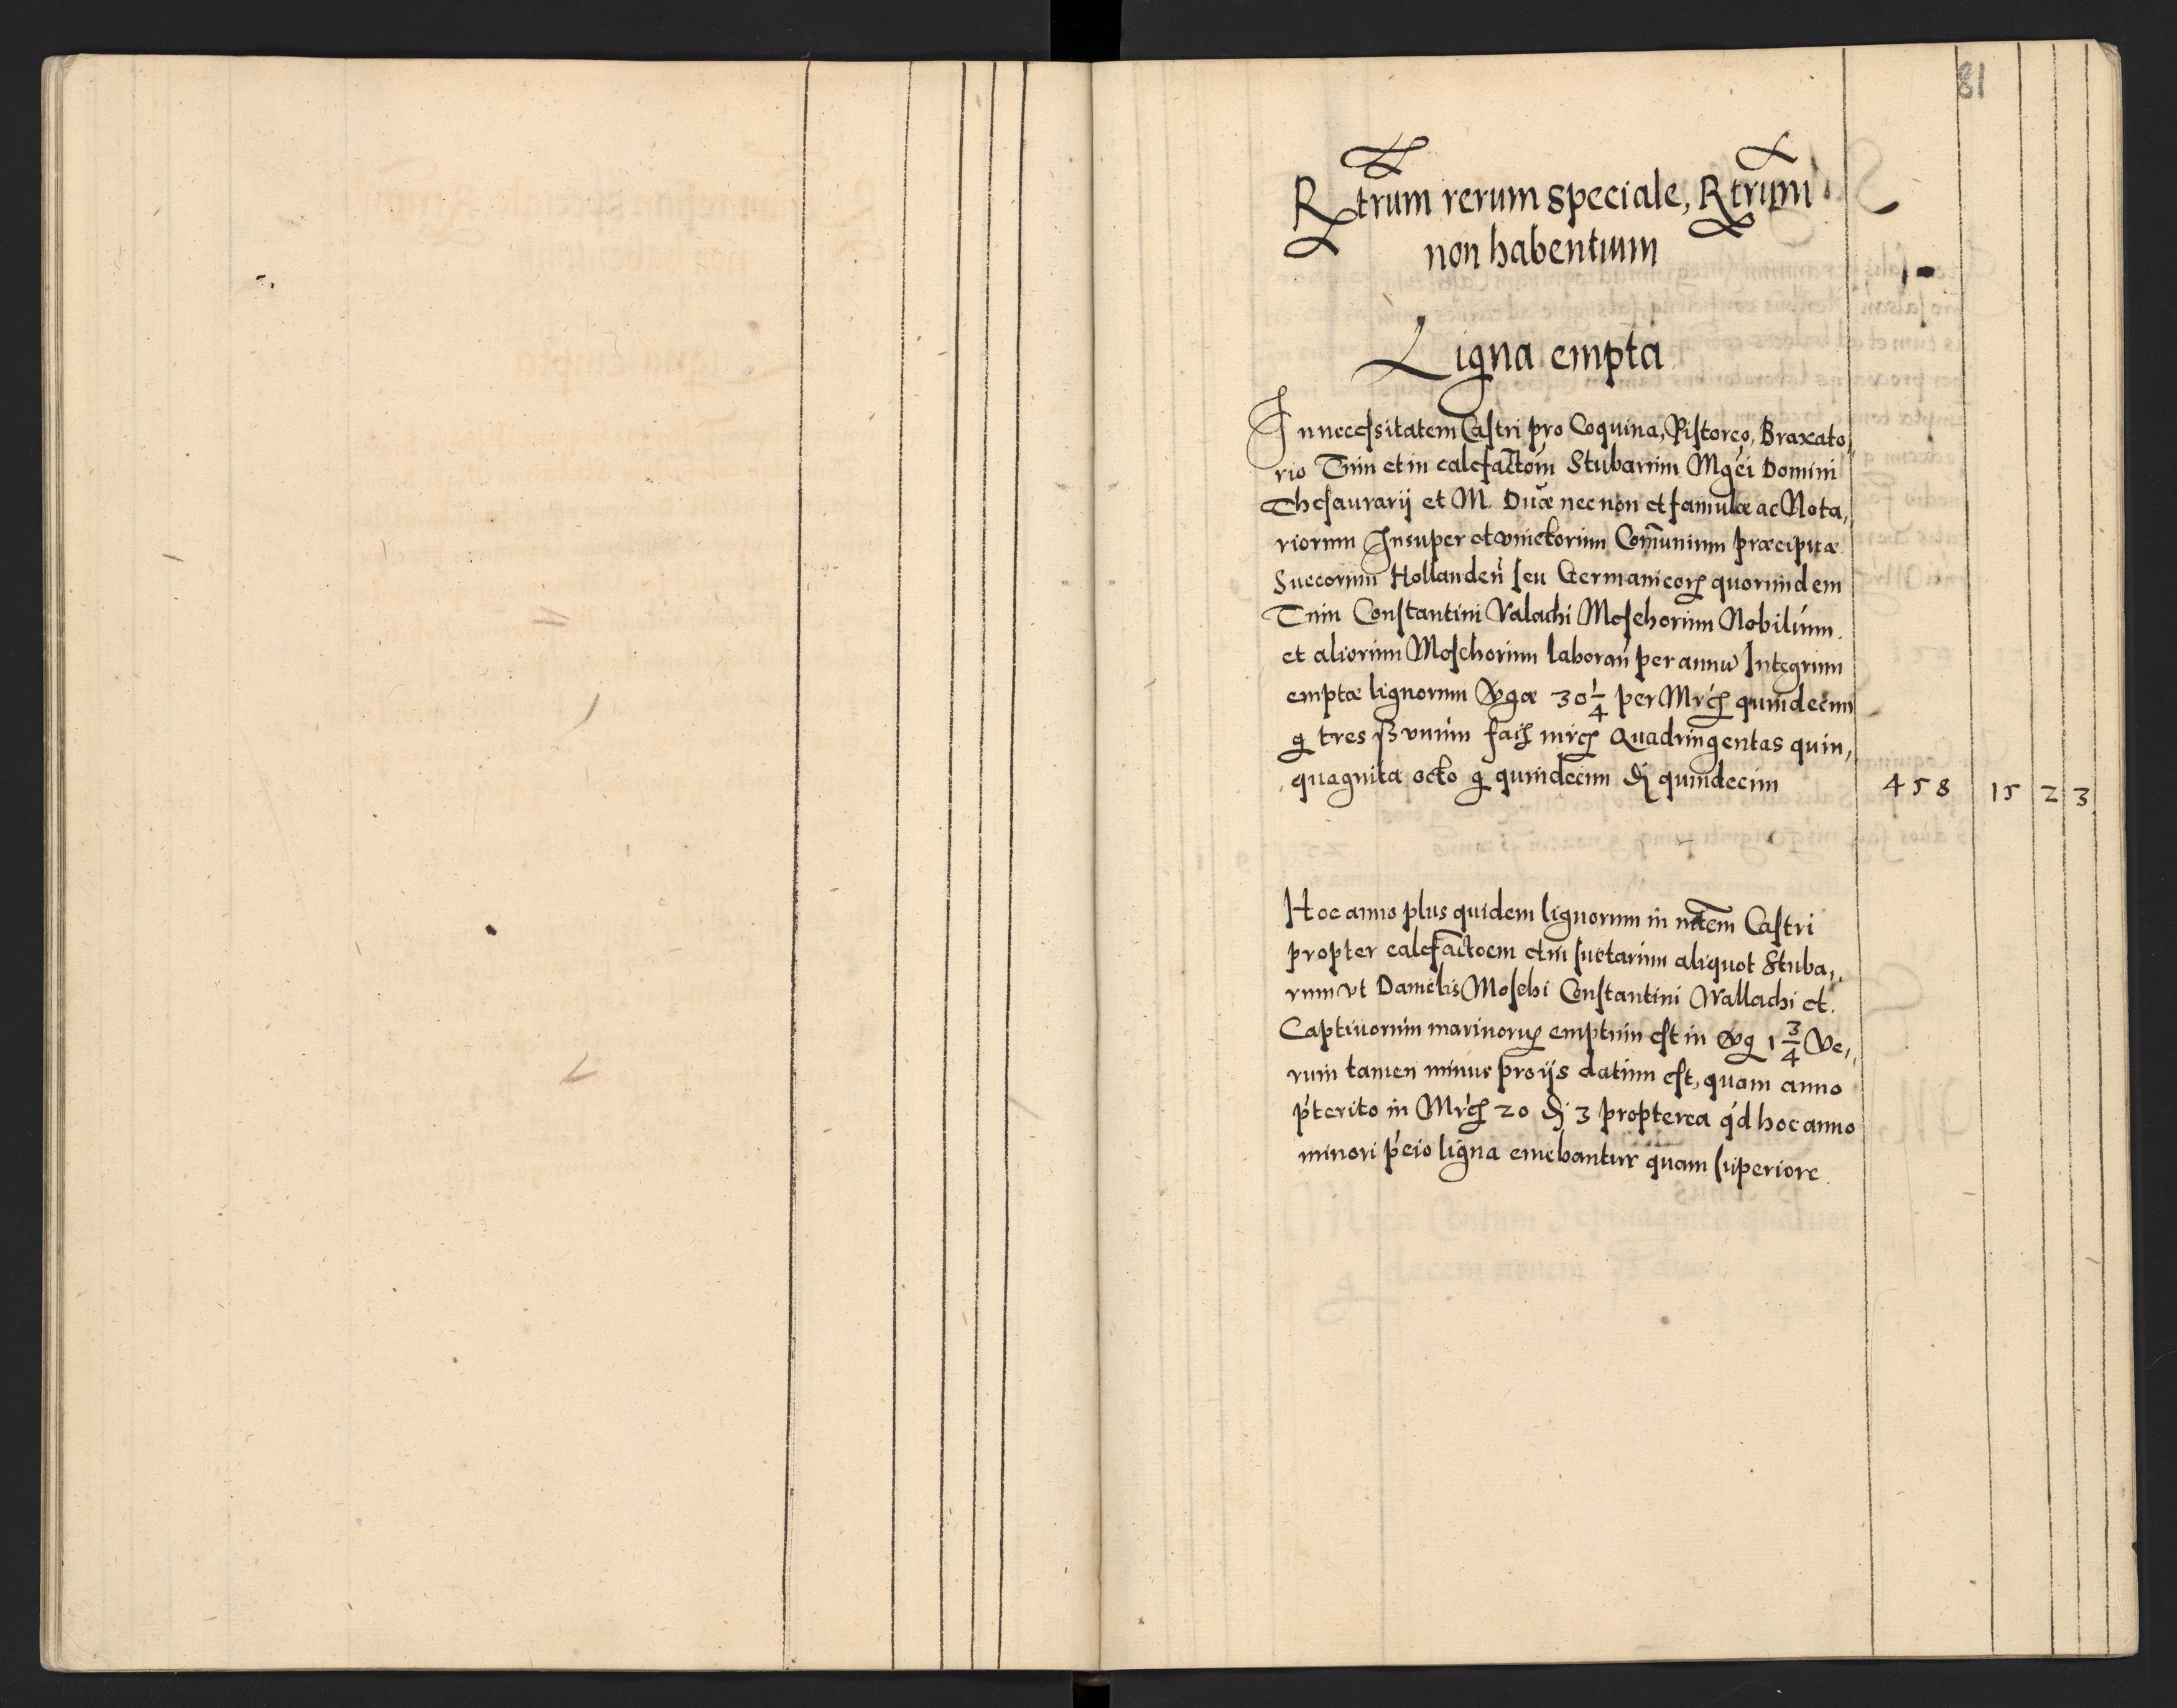 81
Rtrum rerum speciale, Rtrum
non habentium
Ligna empta
In necessitatem Castri pro Coquina, Pistoreo, Braxato,,
rio Tum et in calefactom Stubarum Mgci Domini
Thesaurarij et M. Ducæ nec non et famulæ ac Nota,,
riorum Insuper et vinctorum Comunium præcipuæ
Suecorum Hollanden seu Germanicorꝝ quorundem
Tum Constantini Valachi Moschorum Nobilium.
et aliorum Moschorum laboran per annu Integrum
emptæ lignorum Orgæ 30 1/4 per Mrcꝭ quindecim
g tres ß unum facꝭ mrcꝭ Quadringentas quin,,
quaginta octo g quindecim ₰ quindecim 458 15 2 3
Hoc anno plus quidem lignorum in ntem Castri
propter calefactoem etiam aliquot Stuba,,
rum vt Danielis Moschi Constantini Wallachi et.
Captiuorum marinoruꝝ emptum est in Org 1 3/4 Ve,,
rum tamen minus pro ijs datum est, quam anno
pterito in Mrcꝭ 20 ₰ 3 propterea qd hoc anno
minori pcio ligna emebantur quam superiore.